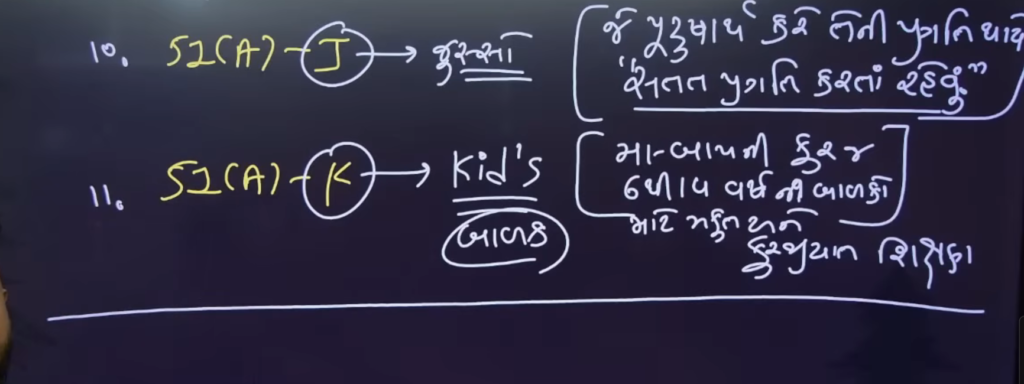 10. 51(A) - J → જુસ્સો
જે પુરુષાર્થ કરે તેની પ્રગતિ થાય
"સતત પ્રગતિ કરતાં રહેવું"
11. 51(A) - K → Kid's
બાળક
મા-બાપની ફરજ
6 થી 14 વર્ષ ની બાળકો
માટે મફત અને
ફરજીયાત શિક્ષણ